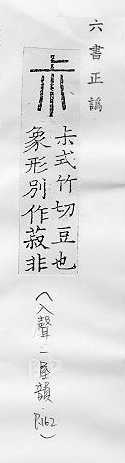 六書正譌
尗式竹切豆也
象形別作菽非
(入聲.一屋韻.P.162)